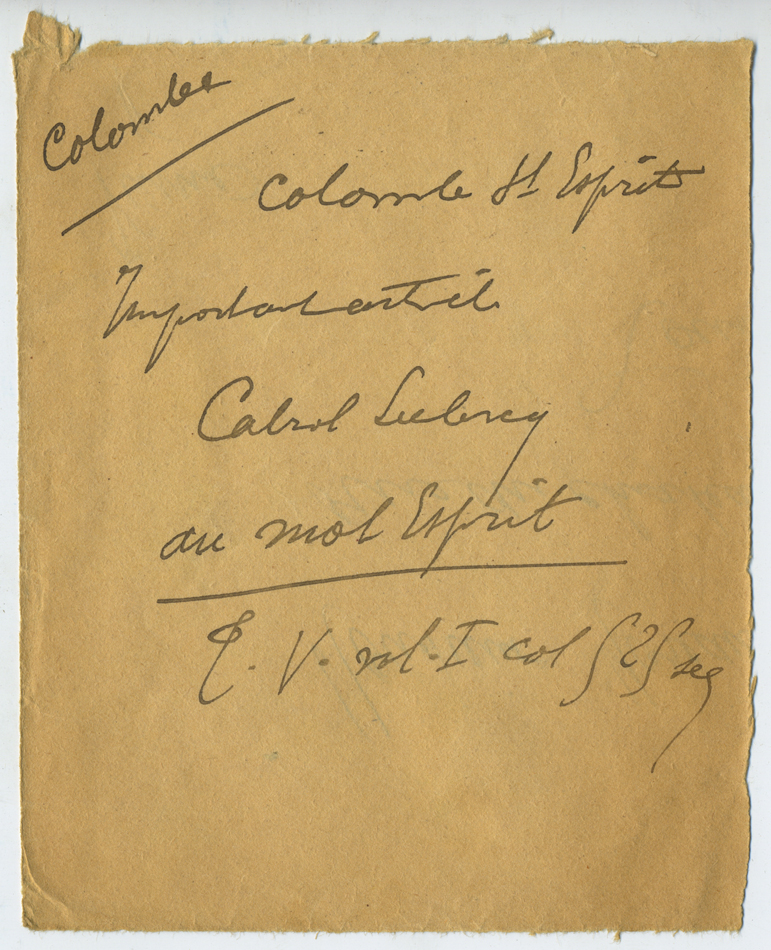 Colombe
Colombe St Esprit
Important article
Cabrol Leclercq
au mot Esprit
T. V. vol. I col 525 seq